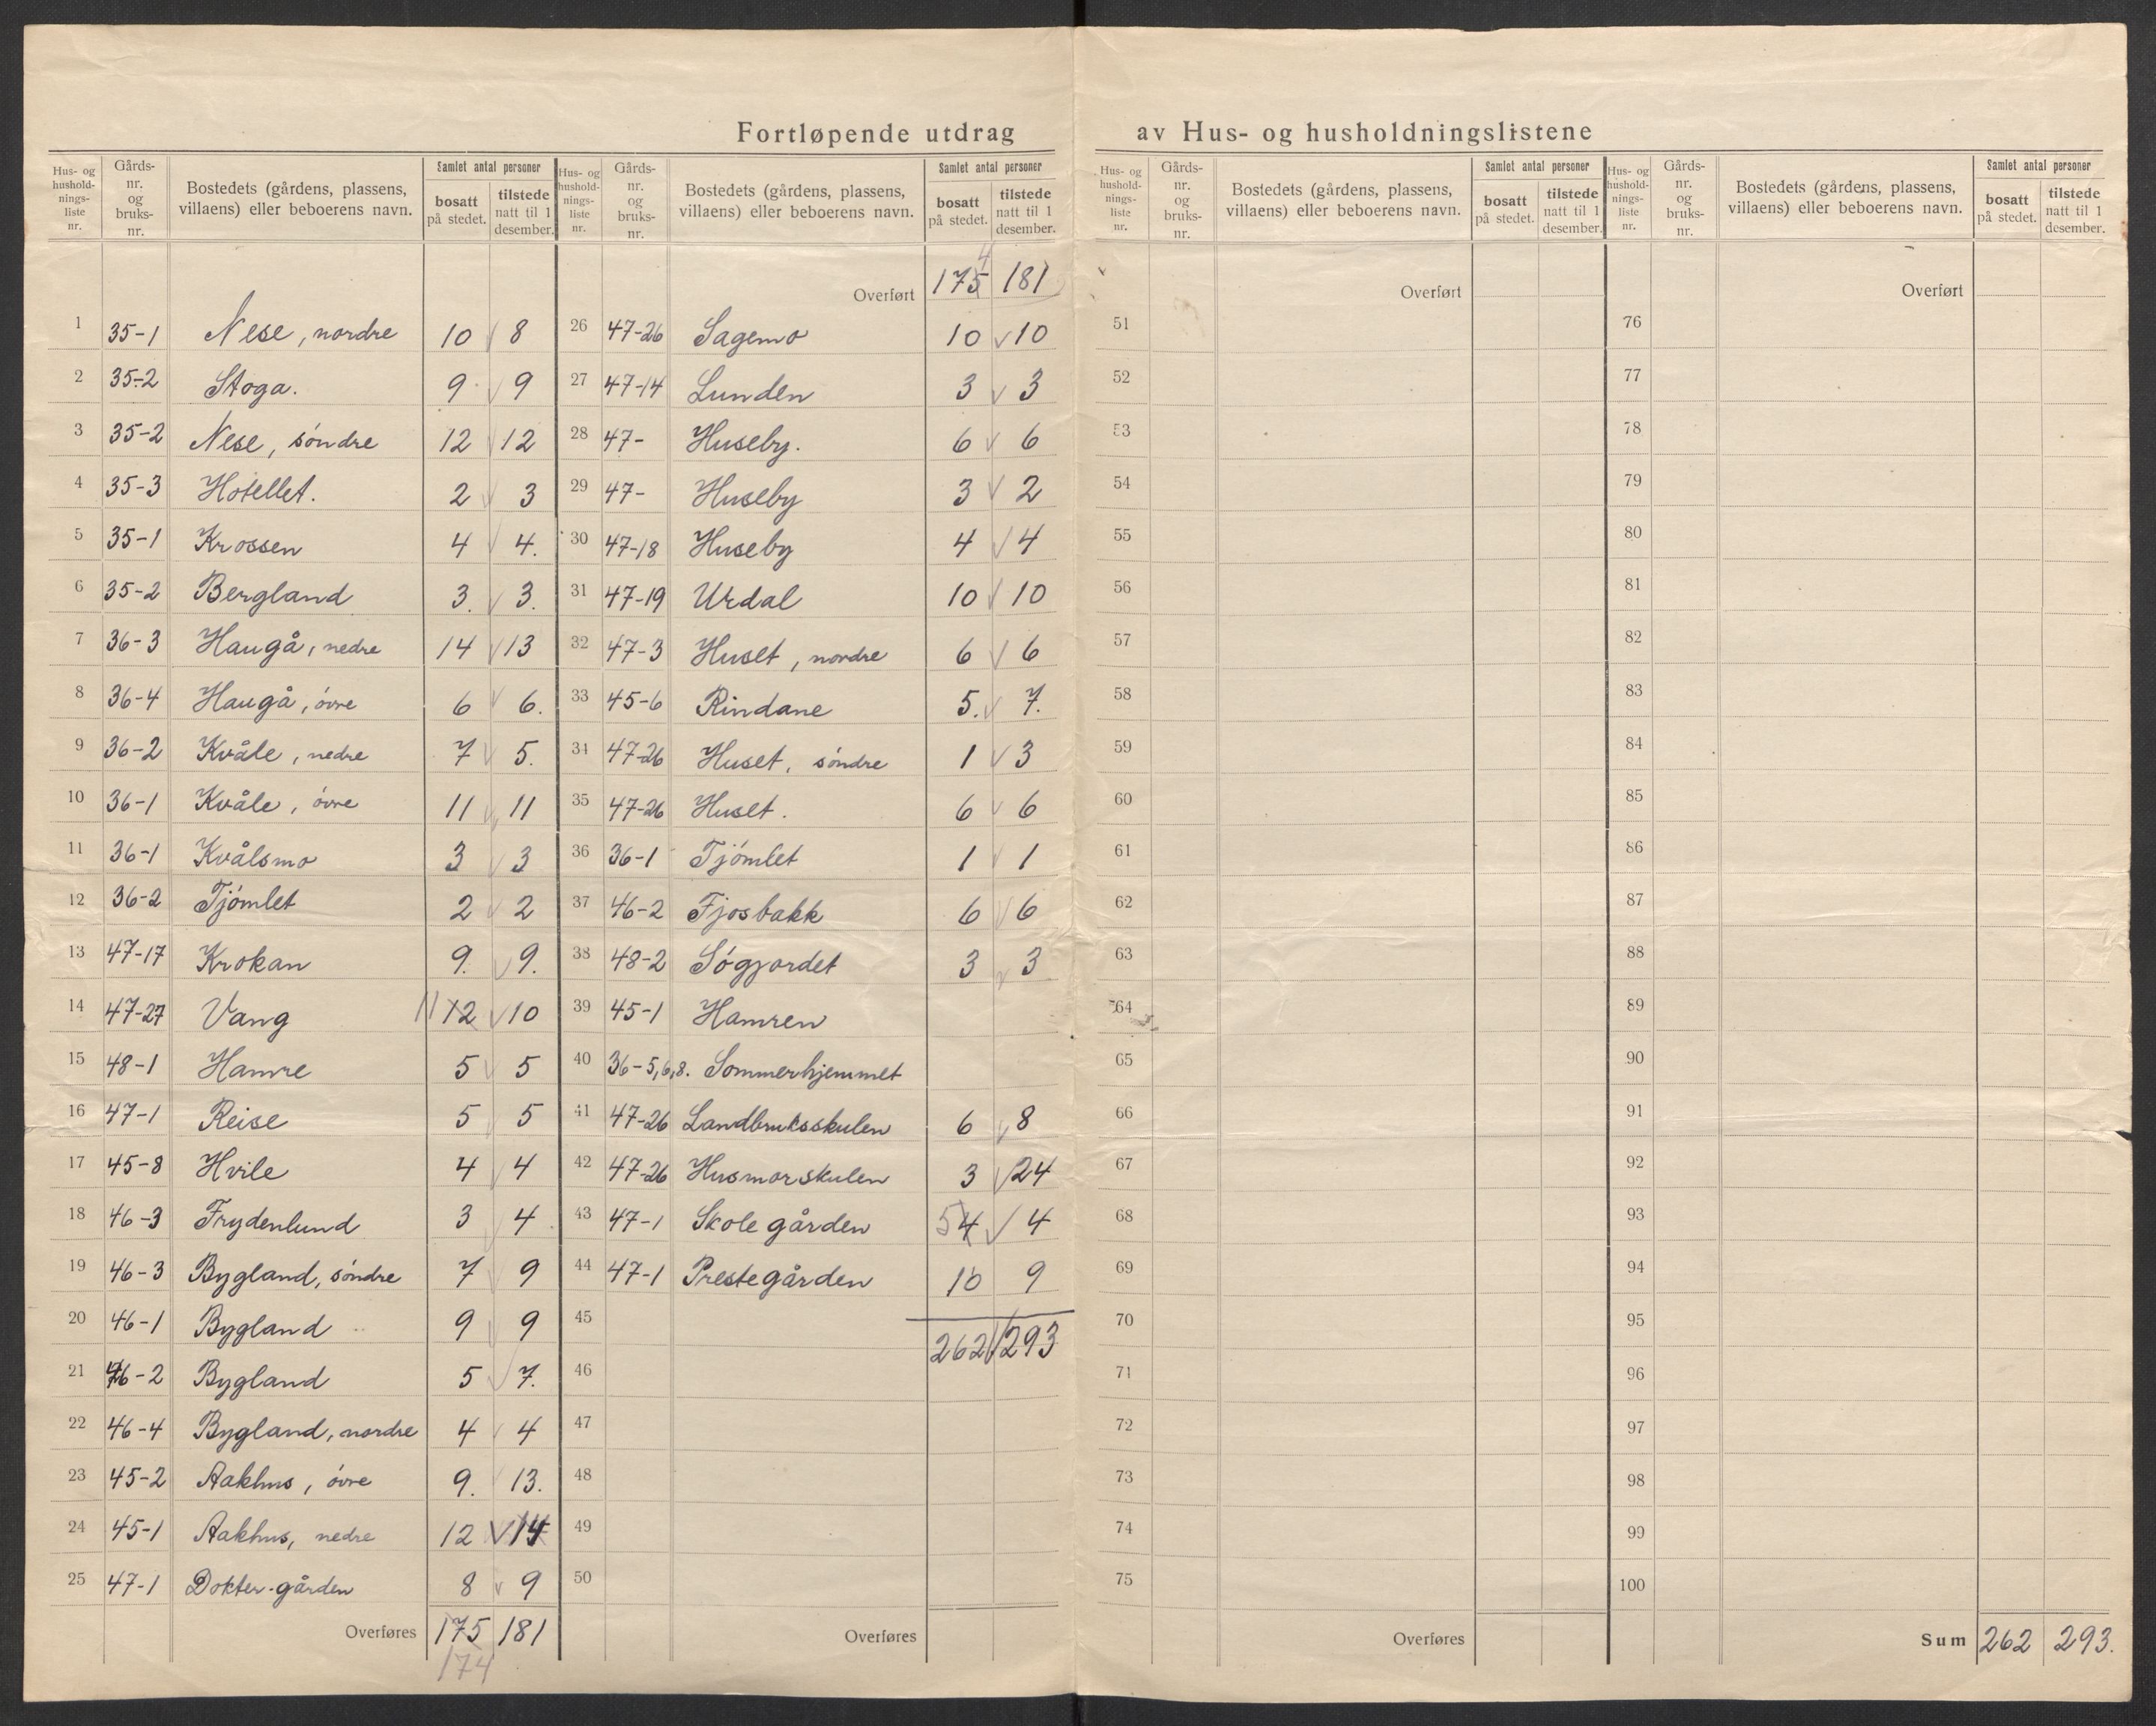 Fortløpende utdrag av Hus- og husholdningslistene
Hus- og hushold-nings-liste nr. | Gårds-nr. og bruks-nr. | Bostedets (gårdens, plassens, villaens) eller beboerens navn. | Samlet antal personer | bosatt på stedet. | tilstede natt til 1 desember.
1 35-1 Nese, nordre 10 8
2 35-2 Stoga. 9 9
3 35-2 Nese, söndre 12 12
4 35-3 Hotellet. 2 3
5 35-1 Krossen 4 4.
6 35-2 Bergland 3. 3.
7 36-3 Haugå, nedre 14 13
8 36-4 Haugå, övre 6 6.
9 36-2 Kvåle, nedre 7 5.
10 36-1 Kvåle, övre 11 11
11 36-1 Kvålsmo 3 3
12 36-2 Tjömlet 2 2
13 47-17 Krokan 9. 9.
14 47-27 Vang 11 12 10
15 48-1 Hamre 5 5
16 47-1 Reise 5 5
17 45-8 Hvile 4 4
18 46-3 Frydenlund 3 4
19 46-3 Bygland, söndre 7 9
20 46-1 Bygland 9 9
21 46-2 Bygland 5 7.
22 46-4 Bygland, nordre 4 4
23 45-2 Aakhus, övre 9. 13.
24 45-1 Aakhus, nedre 12 14
25 47-1 Dokter-gården 8 9
Overføres 175 181
174
Hus- og hushold-nings-liste nr. | Gårds-nr. og bruks-nr. | Bostedets (gårdens, plassens, villaens) eller beboerens navn. | Samlet antal personer | bosatt på stedet. | tilstede natt til 1 desember.
4
Overført 175 181
26 47-26 Sagemo 10 10
27 47-14 Lunden 3 3
28 47- Huseby. 6 6
29 47- Huseby 3 2
30 47-18 Huseby 4 4
31 47-19 Urdal 10 10
32 47-3 Huset, nordre 6 6
33 45-6 Rindane 5. 7.
34 47-26 Huset, söndre 1 3
35 47-26 Huset. 6 6
36 36-1 Tjömlet 1 1
37 46-2 Fjosbakk 6 6
38 48-2 Sögjordet 3 3
39 45-1 Hamren
40 36-5,6,8. Sommerhjemmet
41 47-26 Landbruksskulen 6 8
42 47-26 Husmorskulen 3 24
43 47-1 Skolegården 5 4 4
44 47-1 Prestegården 10 9
45
262 293
46
47
48
49
50
Overføres
Hus- og hushold-nings-liste nr. | Gårds-nr. og bruks-nr. | Bostedets (gårdens, plassens, villaens) eller beboerens navn. | Samlet antal personer | bosatt på stedet. | tilstede natt til 1 desember.
Overført
51
52
53
54
55
56
57
58
59
60
61
62
63
64
65
66
67
68
69
70
71
72
73
74
75
Overføres
Hus- og hushold-nings-liste nr. | Gårds-nr. og bruks-nr. | Bostedets (gårdens, plassens, villaens) eller beboerens navn. | Samlet antal personer | bosatt på stedet. | tilstede natt til 1 desember.
Overført
76
77
78
79
80
81
82
83
84
85
86
87
88
89
90
91
92
93
94
95
96
97
98
99
100
Sum 262 293.